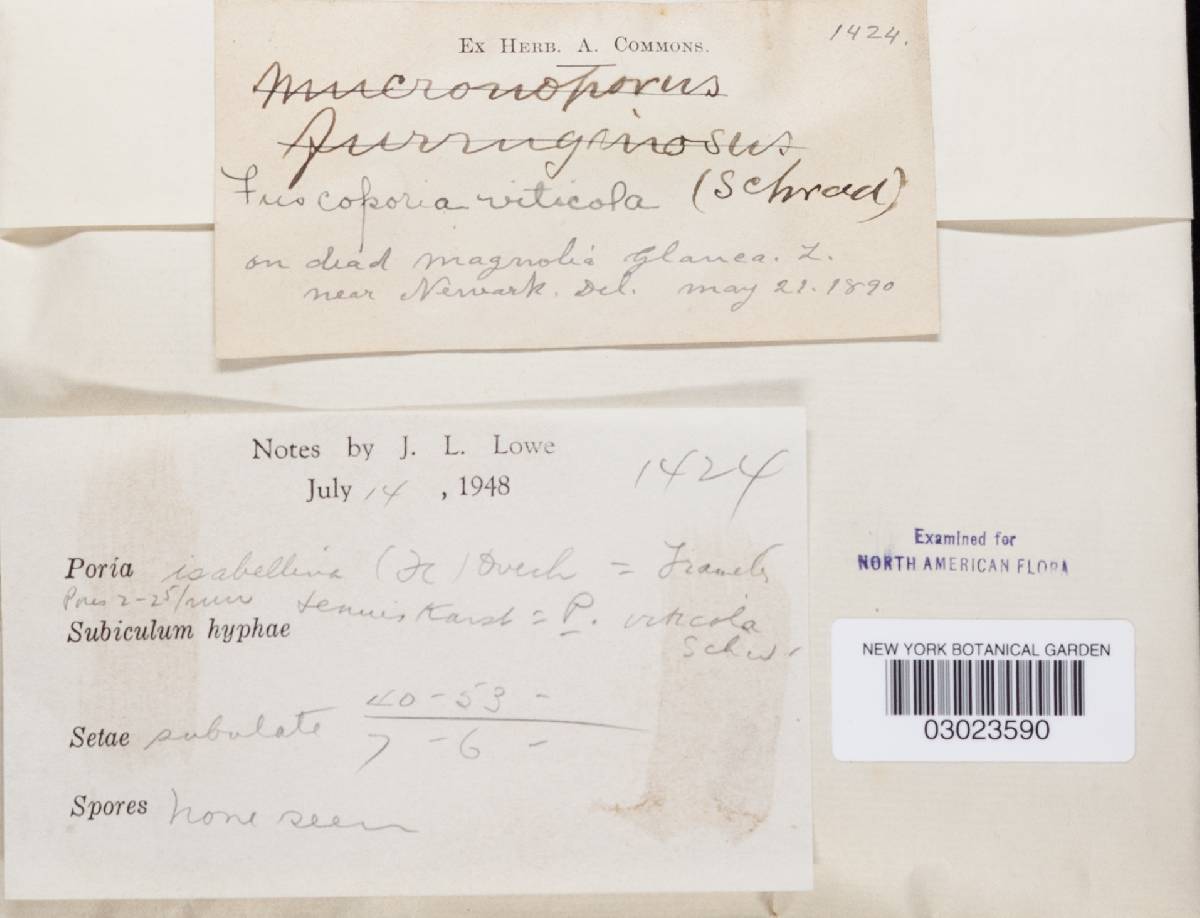 Ex Herb. A. Commons.
1424.
Mucronoporus
furruginosus
Fuscoporia viticola (Schrad)
on dead magnolia Glauca. L.
near Newark. Del. may 21. 1890
Notes by J. L. Lowe
July 14, 1948
1424
Poria isabellina (Fr) Overh =
Pores 2-25/mm tenuis Karst = P. viticola
Subiculum hyphae
Schw.
40 - 53 -
Setae subulate
7 - 6 -
Spores None seen
Examined for
NORTH AMERICAN FLORA
NEW YORK BOTANICAL GARDEN
03023590